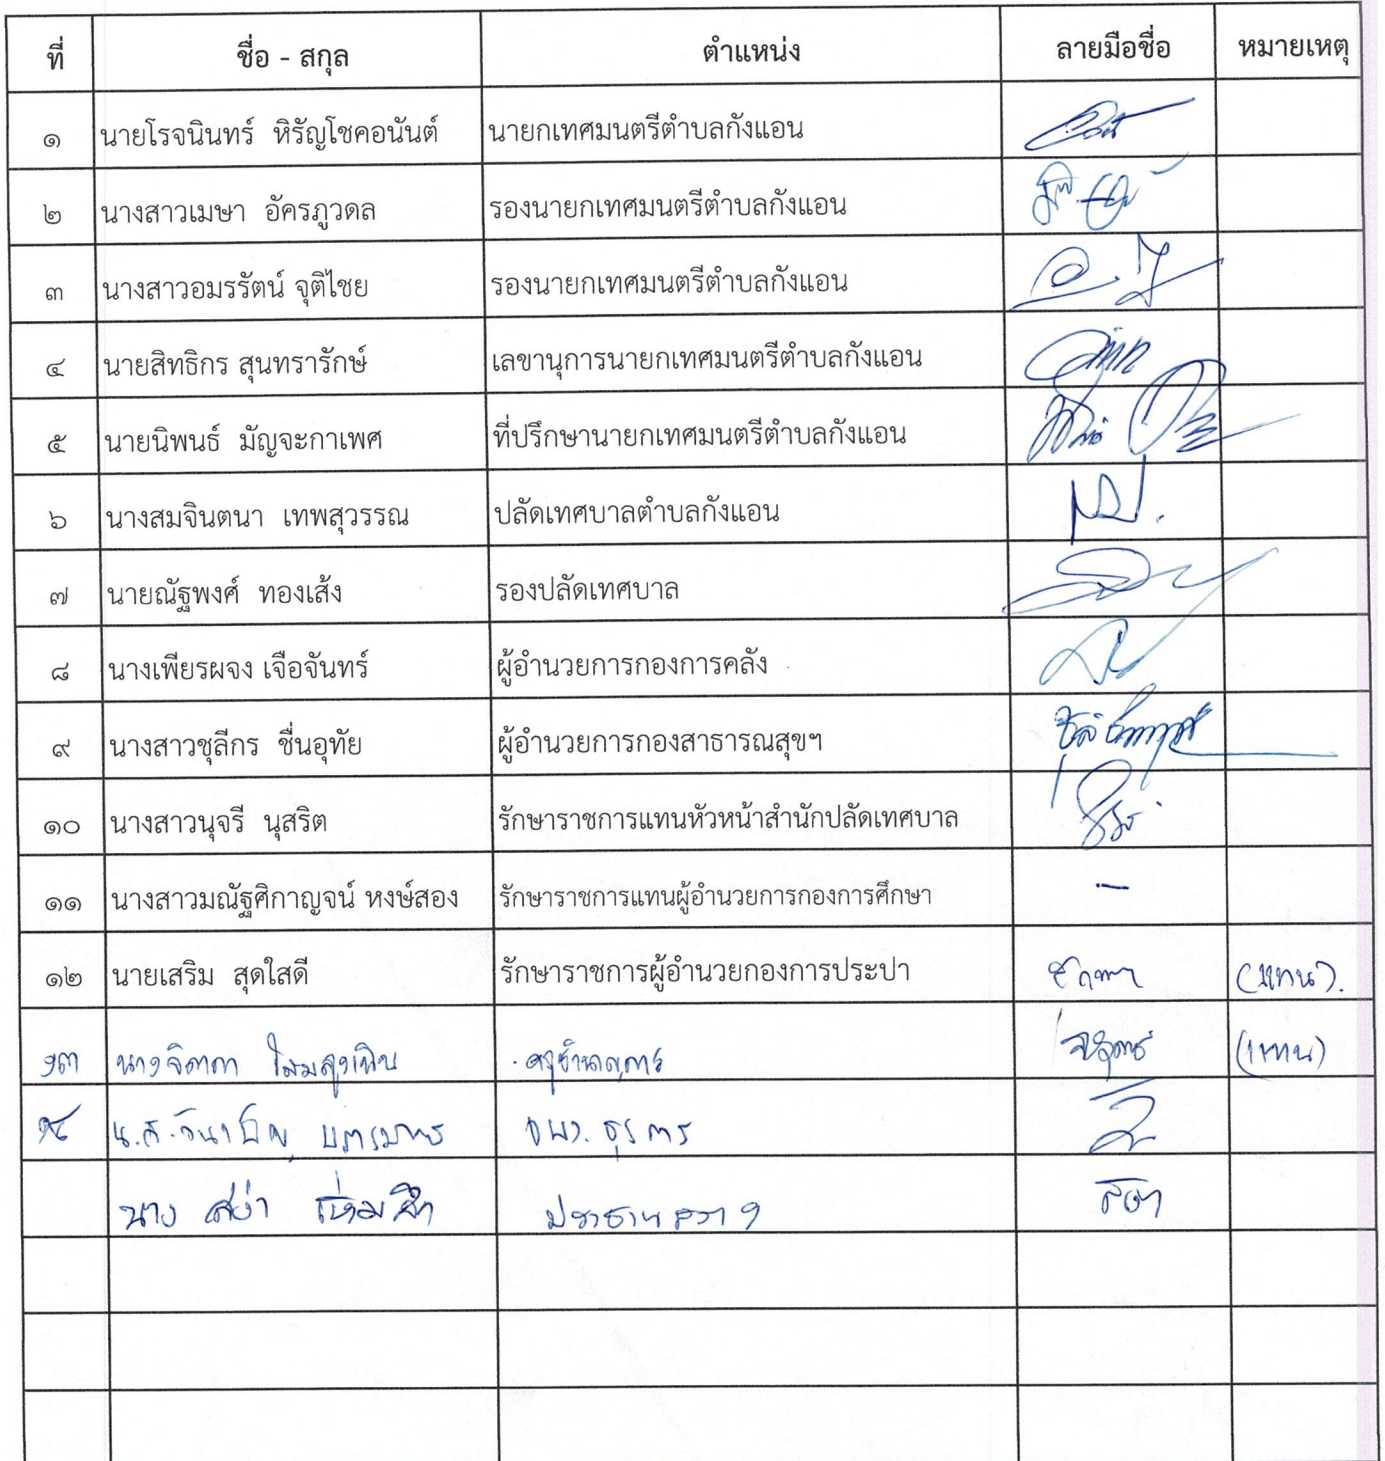 ที่ ชื่อ - สกุล ตำแหน่ง ลายมือชื่อ หมายเหตุ
๑ นายโรจนินทร์ หิรัญโชคอนันต์ นายกเทศมนตรีตำบลกังแอน
๒ นางสาวเมษา อัครภูวดล รองนายกเทศมนตรีตำบลกังแอน
๓ นางสาวอมรรัตน์ จุติไชย รองนายกเทศมนตรีตำบลกังแอน
๔ นายสิทธิกร สุนทรารักษ์ เลขานุการนายกเทศมนตรีตำบลกังแอน
๕ นายนิพนธ์ มัญจะกาเพศ ที่ปรึกษานายกเทศมนตรีตำบลกังแอน
๖ นางสมจินตนา เทพสุวรรณ ปลัดเทศบาลตำบลกังแอน
๗ นายณัฐพงศ์ ทองเส้ง รองปลัดเทศบาล
๘ นางเพียรผจง เจือจันทร์ ผู้อำนวยการกองการคลัง
๙ นางสาวชุลีกร ชื่นอุทัย ผู้อำนวยการกองสาธารณสุขฯ
๑๐ นางสาวนุจรี นุสริต รักษาราชการแทนหัวหน้าสำนักปลัดเทศบาล
๑๑ นางสาวมณัฐศิกาญจน์ หงษ์สอง รักษาราชการแทนผู้อำนวยการกองการศึกษา -
๑๒ นายเสริม สุดใสดี รักษาราชการผู้อำนวยกองการประปา (แทน).
๑๓ นางจิดาภา ครูชำนาญการ (แทน)
๑๔ น.ส. จพง. ธุรการ
นาง สง่า ประธานสภาฯ สง่า